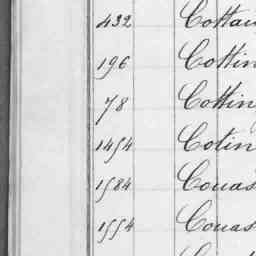 432 Cottan
196 Cottin
78 Cottin
1454 Cotin
1584 Couas
1554 Couas